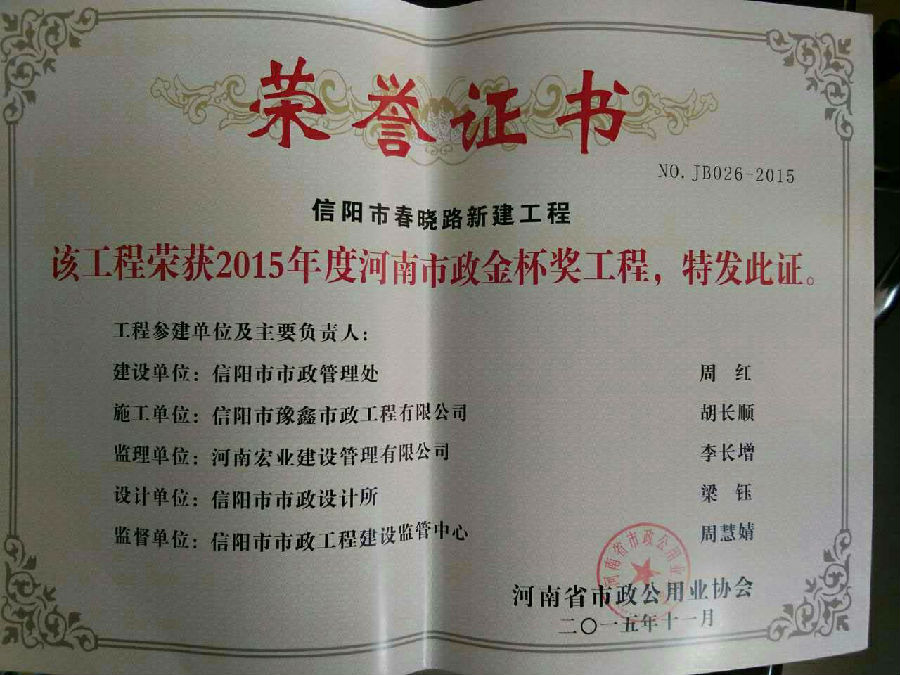 荣誉证书
NO.JB026-2015
信阳市春晓路新建工程
该工程荣获2015年度河南市政金杯奖工程，特发此证。
工程参建单位及主要负责人：
建设单位：信阳市市政管理处 周 红
施工单位：信阳市豫鑫市政工程有限公司 胡长顺
监理单位：河南宏业建设管理有限公司 李长增
设计单位：信阳市市政设计所 梁 钰
监督单位：信阳市市政工程建设监管中心 周慧婧
河南省市政公用业
河南省市政公用业协会
二〇一五年十一月